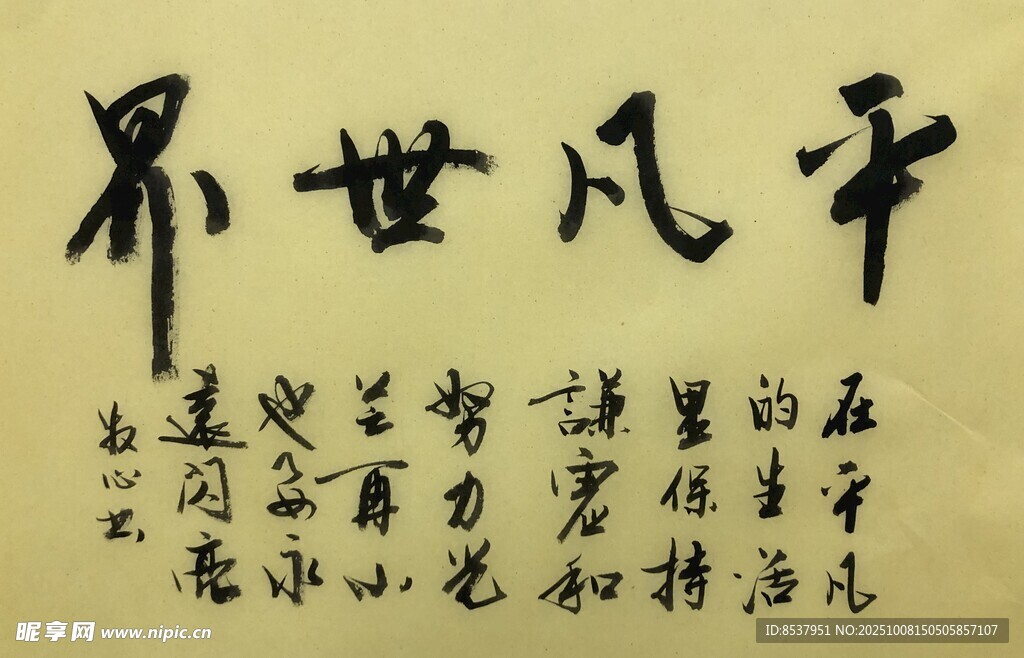 平凡世界
在平凡
的生活
里保持
謙虚和
努力光
芒再小
也要永
遠闪亮
牧心书
昵享网 www.nipic.cn
ID:8537951 NO:20251008150505857107